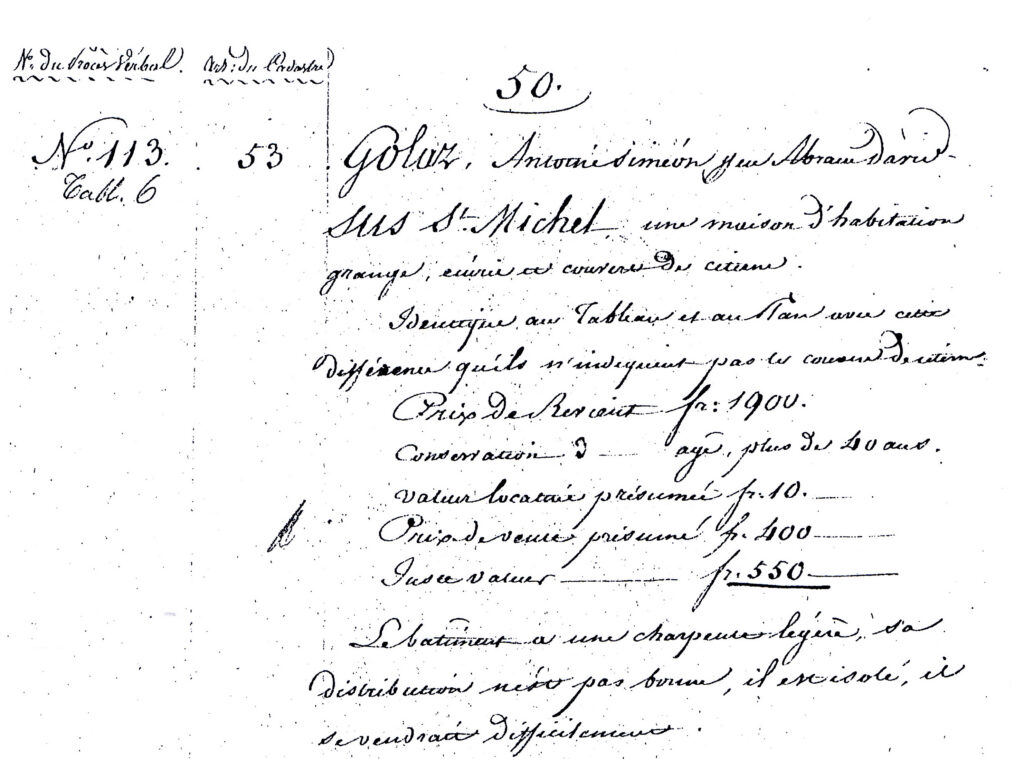 No. du Procès Verbal. Art: du Cadastre
50.
No. 113. 53. Golaz, Antoine siméon feu Abram david
Tabl. 6
sus St. Michel une maison d'habitation
grange, écurie et couvert de citerne.
Identique au Tableau et au Plan avec cette
différence qu'ils n'indiquent pas le couvert de citerne.
Prix de Revient fr: 1900.
Conservation 3 — agé, plus de 40 ans.
Valeur locative présumée fr. 10. —
Prix de vente présumé fr. 400 —
Juste valeur — fr. 550 —
Le batiment a une charpente légère, sa
distribution n'est pas bonne, il est isolé, il
se vendrait difficilement.